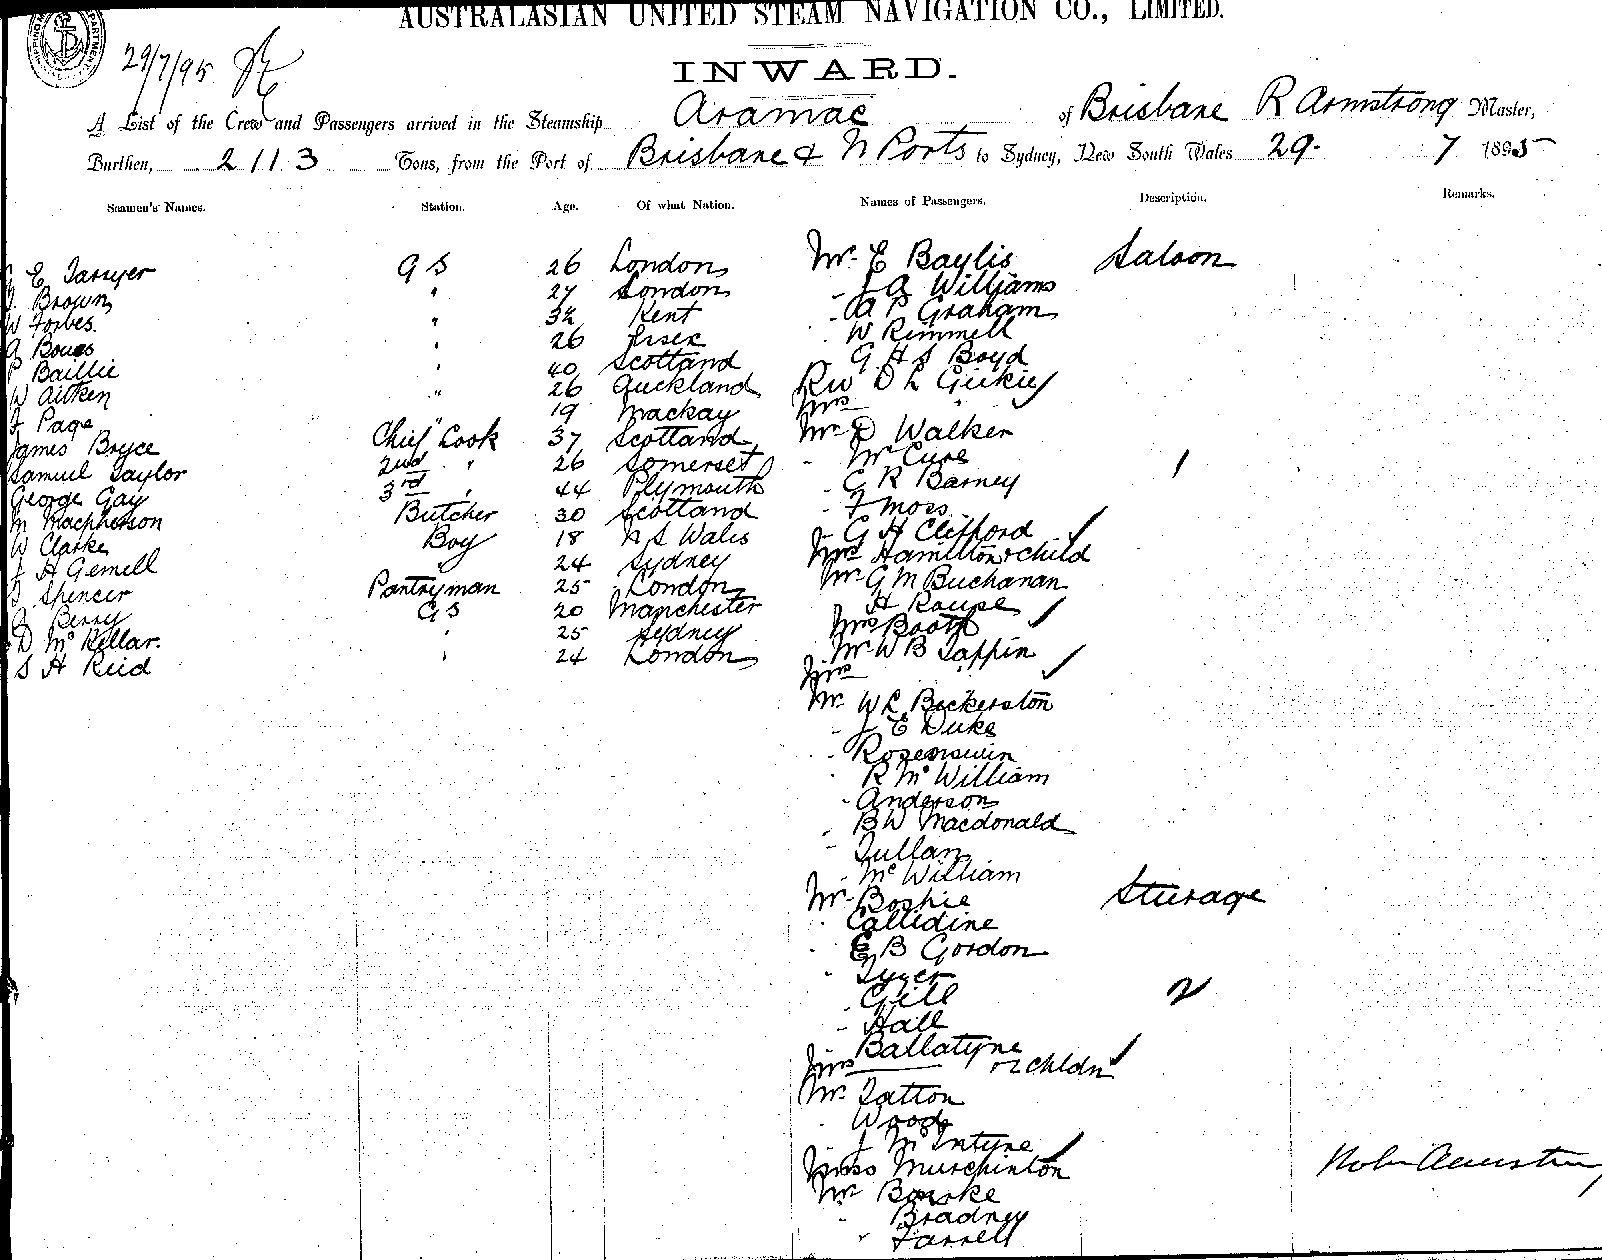 AUSTRALASIAN UNITED STEAM NAVIGATION CO., LIMITED.
29/7/95
INWARD.
A List of the Crew and Passengers arrived in the Steamship Aramac of Brisbane R Armstrong Master,
Burthen, 2113 Tons, from the Port of Brisbane & N Ports to Sydney, New South Wales 29. 7 1895
Seamen's Names. Station. Age. Of what Nation. Names of Passengers. Description. Remarks.
E Sawyer G S 26 London Mr. E Baylis Saloon
Brown " 27 London - J A Williams
W Forbes. " 32 Kent - A P Graham
A " 26 Essex W Rimmell
P Baillie " 40 Scotland G H S Boyd
W Aitken " 26 Auckland Rev D L Geikie
J Page " 19 Mackay Mrs "
James Bryce Chief Cook 37 Scotland Mr D Walker
Samuel Taylor 2nd " 26 Somerset - McCure
George Gay 3rd " 44 Plymouth - G R Barney 1
M Macpherson Butcher 30 Scotland - F Moss
W Clarke Boy 18 N S Wales - G H Clifford
J H Gemell " 24 Sydney Mrs Hamilton & child
Spencer Pantryman 25 London Mr G M Buchanan
Berry G S 20 Manchester H Roupe
D McKellar. " 25 Sydney Mrs Booth
S H Reid " 24 London Mr W B Tappin
Mrs "
Mr W L Bickerston
- J E Duke
- Rosenswin
- R McWilliam
- Anderson
- B W Macdonald
- Tullan
- McWilliam
Mr Boshie Steerage
- Callidine
- E B Gordon
- Tyzer
- Gill 2
- Hall
- Ballatyne
Mrs —— & 2 chldn
Mr. Tatton
- Wood
- J McIntyre
Miss Murchinton
Mr Bourke
- Bradney
" Farrell